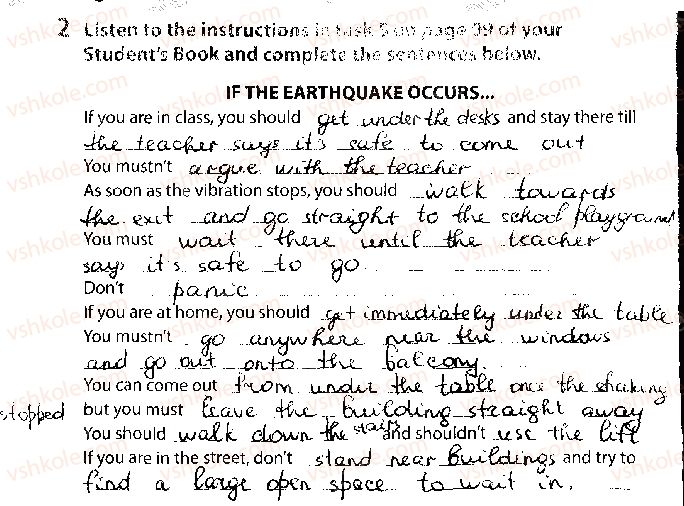 2 Listen to the instructions in task 5 on page 99 of your
Student's Book and complete the sentences below.
IF THE EARTHQUAKE OCCURS...
If you are in class, you should get under the desks and stay there till
the teacher says it's safe to come out
You mustn't argue with the teacher
As soon as the vibration stops, you should walk towards
the exit and go straight to the school playground
You must wait there until the teacher
says it's safe to go
Don't panic
If you are at home, you should get immediately under the table
You mustn't go anywhere near the windows
and go out onto the balcony.
You can come out from under the table once the shaking
stopped but you must leave the building straight away
You should walk down the stairs and shouldn't use the lift
If you are in the street, don't stand near buildings and try to
find a large open space to wait in.
vshkole.com